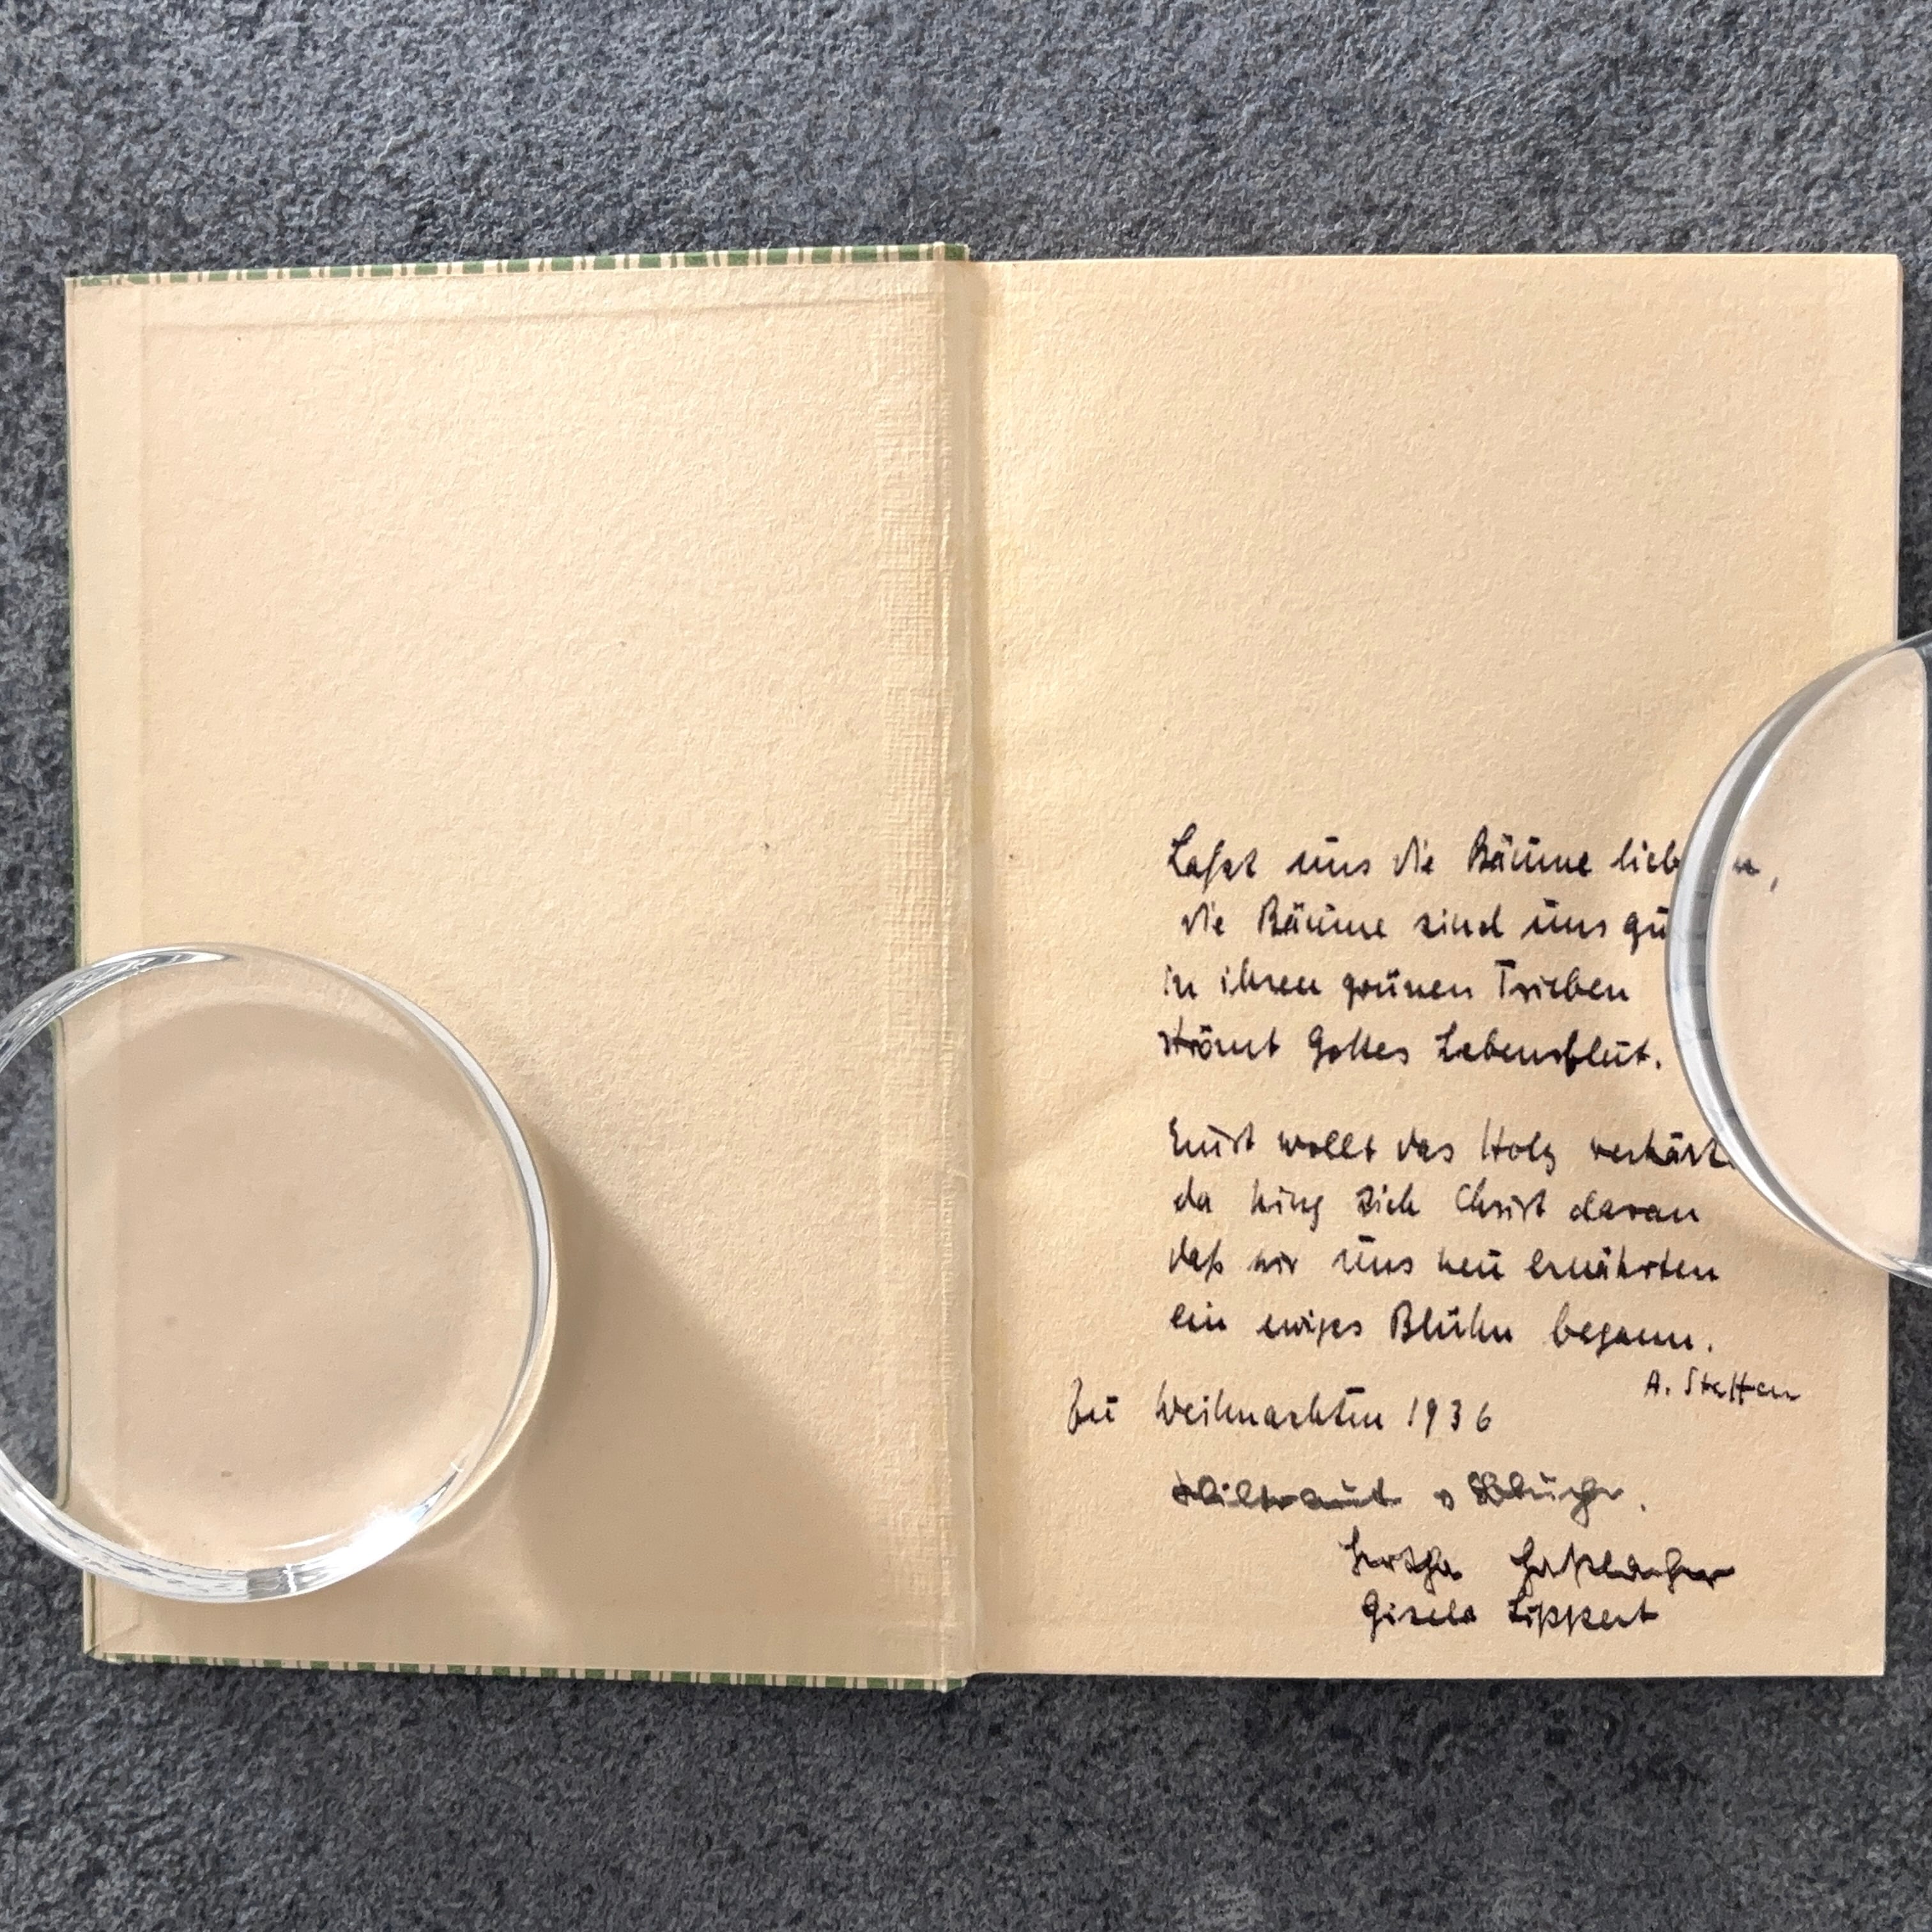 Lasst uns die Bäume lieben,
die Bäume sind uns gu
in ihren grünen Trieben
strömt Gottes Lebensblut.
Einst wollt das Holz verhärt
da hing sich Christ daran
daß wir uns neu ernährten
ein ewiges Blühn begann.
A. Steffen
Zu Weihnachten 1936
Wiltraut v Blücher.
Hertha Haßlacher
Gisela Lippert